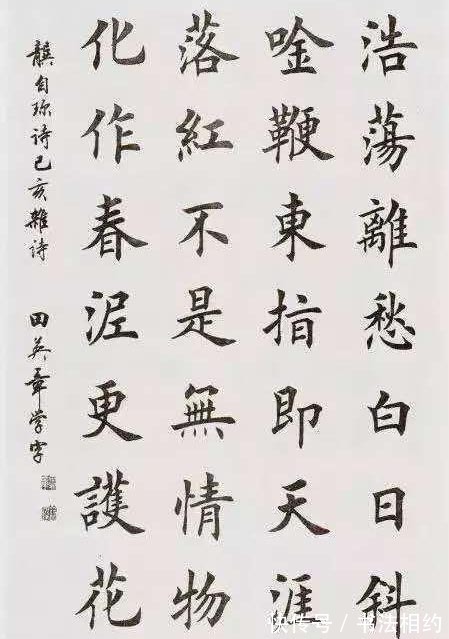 浩蕩離愁白日斜
唫鞭東指即天涯
落紅不是無情物
化作春泥更護花
龔自珍詩己亥雜詩
田英章學字
快传号/书法相约